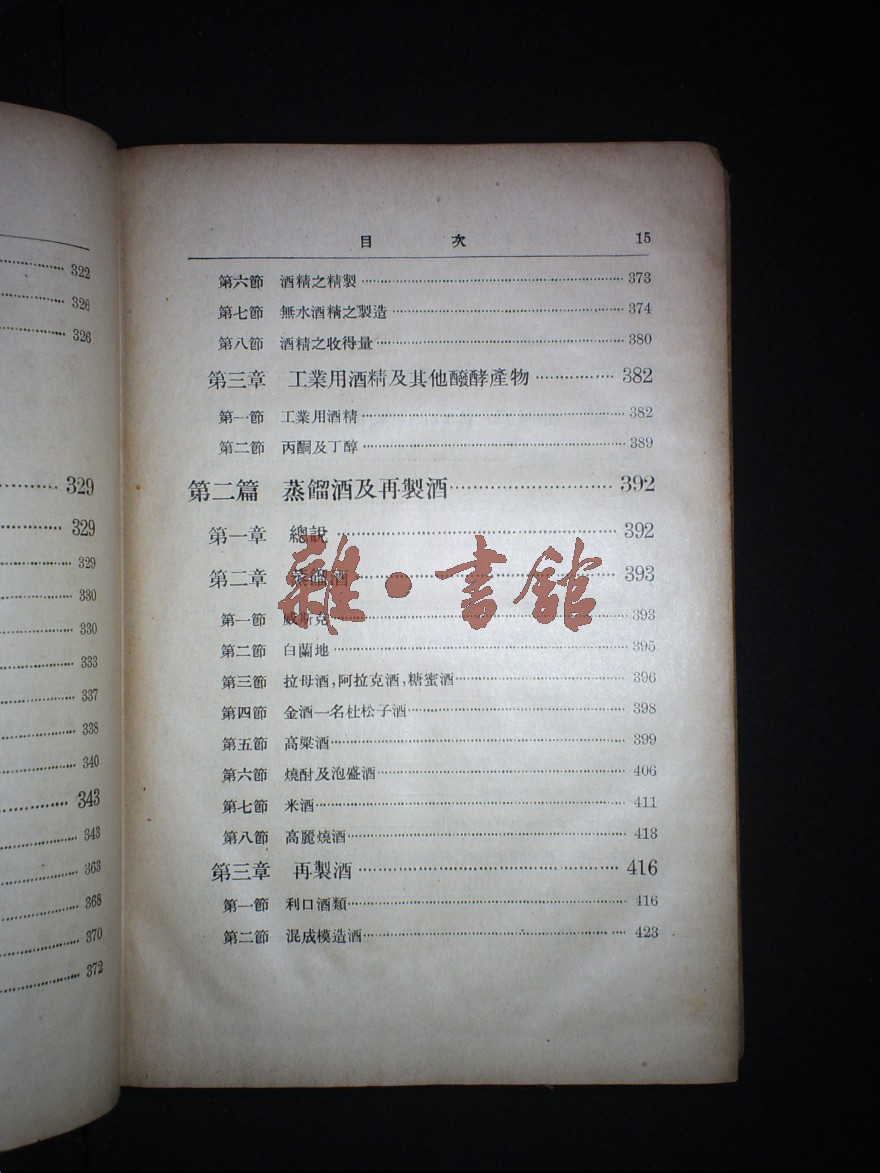 322
326
326
329
329
329
330
330
333
337
338
340
343
343
363
368
370
372
目 次 15
第六節 酒精之精製 373
第七節 無水酒精之製造 374
第八節 酒精之收得量 380
第三章 工業用酒精及其他醱酵產物 382
第一節 工業用酒精 382
第二節 丙酮及丁醇 389
第二篇 蒸餾酒及再製酒 392
第一章 總說 392
第二章 蒸餾酒 393
雜·書館
第一節 威斯克 393
第二節 白蘭地 395
第三節 拉母酒,阿拉克酒,糖蜜酒 396
第四節 金酒一名杜松子酒 398
第五節 高粱酒 399
第六節 燒酎及泡盛酒 406
第七節 米酒 411
第八節 高麗燒酒 413
第三章 再製酒 416
第一節 利口酒類 416
第二節 混成模造酒 423